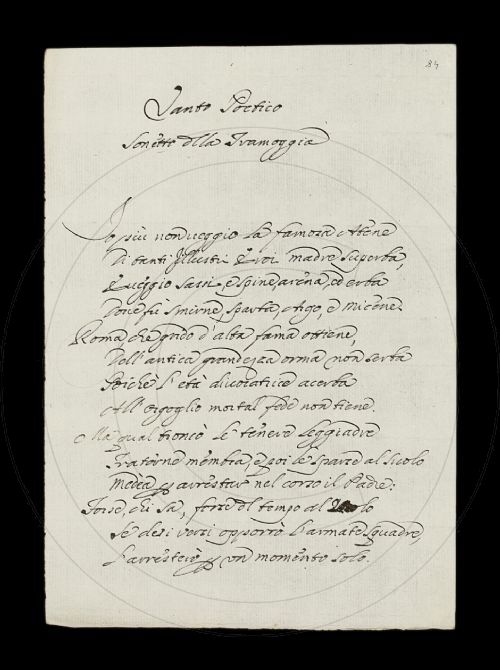 84
Vanto Poetico
Sonetto alla Tramoggia
Io più non veggio la famosa Atene
Di tanti Illustri Eroi madre superba,
E veggio sassi, e spine, arena, ed erba
Dove fu Smirne, Sparta, Argo, e Micene.
Roma, che grido d'alta fama ottiene,
Dell'antica grandezza orma non serba
Poichè l'età divoratrice acerba
All'orgoglio mortal fede non tiene.
Ma qual troncò le tenere leggiadre
Fraterne membra, e poi le sparse al suolo
Medea per arrestar nel corso il Padre:
Forse, chi sa, forse del tempo al volo
Se de i versi opporrò l'armate squadre,
L'arresterò per un momento solo.